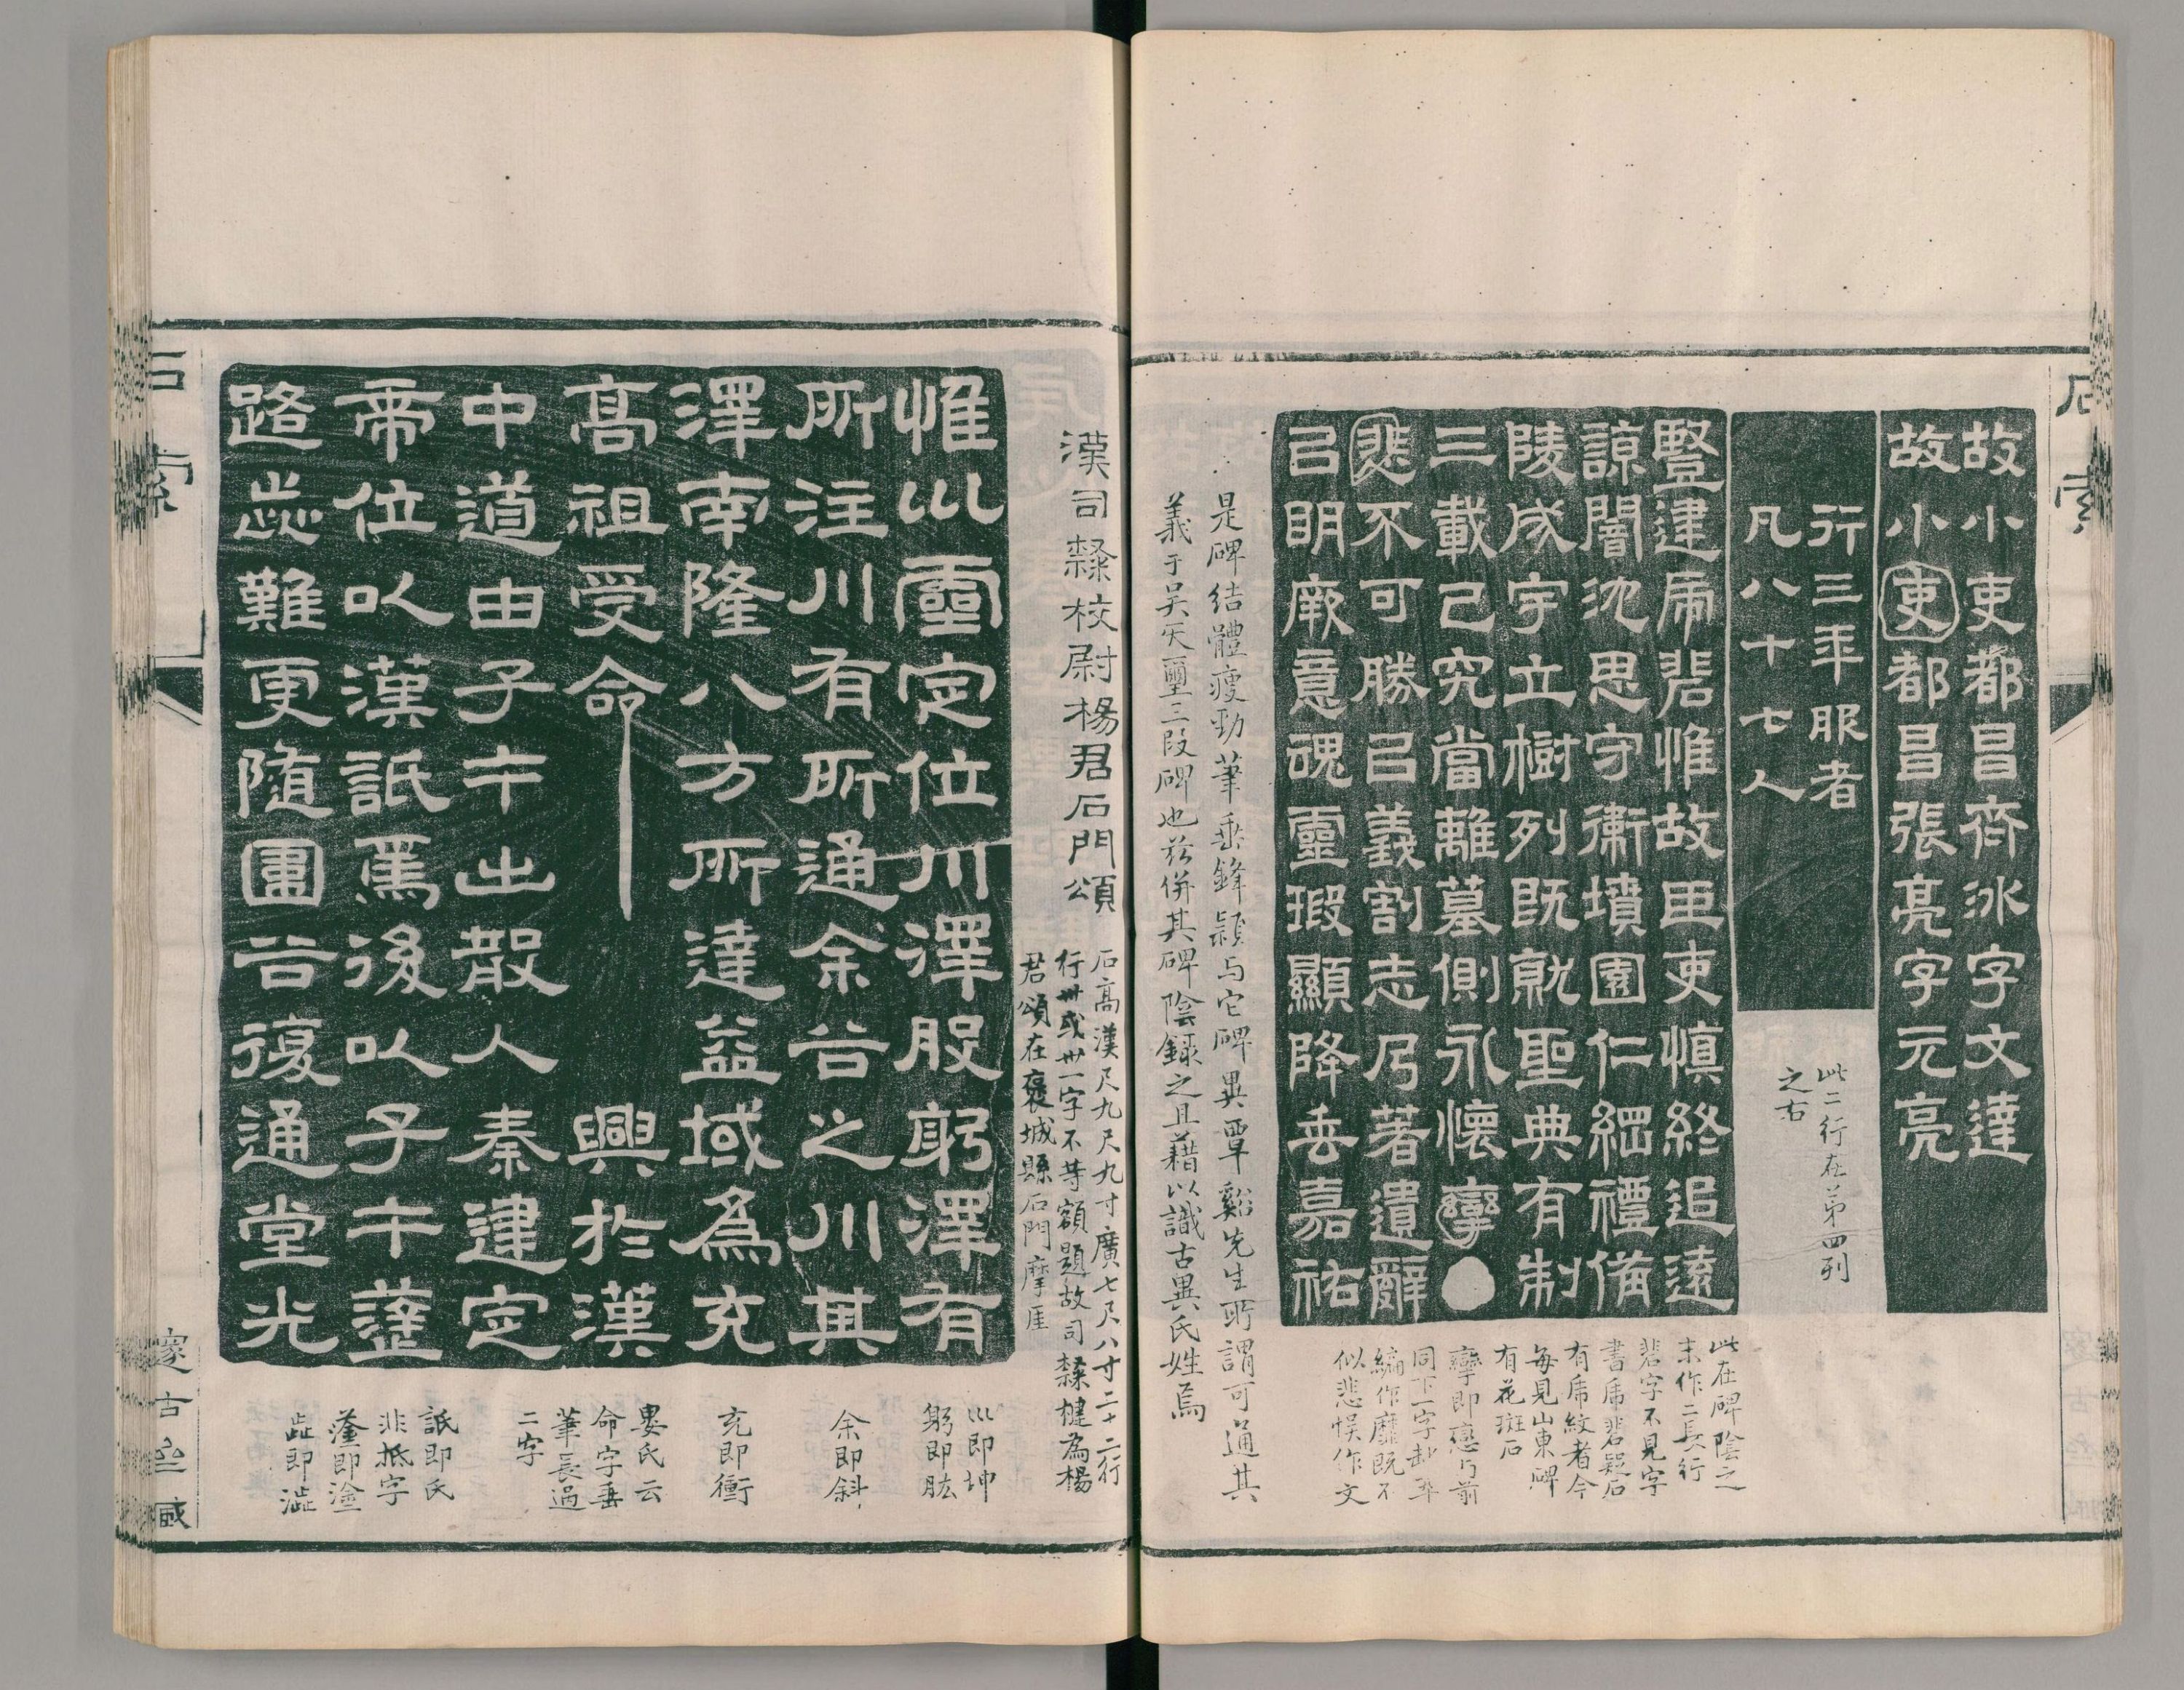 石索
故小吏都昌齊冰字文達
故小吏都昌張亮字元亮
行三年服者
凡八十七人
此二行在第四列
之右
豎建虎𥓓惟故臣吏慎終追遠
諒闇沈思守衛墳園仁綱禮備
陵成宇立樹列既就聖典有制
三載已究當離墓側永懷孿
悲不可勝㠯義割志乃著遺辭
㠯明厥意魂靈瑕顯降垂嘉祐
此在碑陰之
末作二長行
𥓓字不見字
書虎𥓓疑石
有虎紋者今
每見山東碑
有花斑石
孿即戀乃前
同下一字
作靡既不
似悲悞作文
是碑結體瘦勁筆垂鋒頴与它碑異覃谿先生所謂可通其
義于吳天璽三段碑也茲併其碑陰錄之且藉以識古異氏姓焉
漢司隸校尉楊君石門頌
石高漢尺九尺九寸廣七尺八寸二十二行
行卅或卅一字不等額題故司隸楗為楊
君頌在褒城縣石門摩厓
惟巛靈定位川澤股躬澤有
所注川有所通余谷之川其
澤南隆八方所達益域為充
高祖受命興於漢
中道由子午出散人秦建定
帝位以漢詆焉後以子午𡍼
路歮難更隨圍谷復通堂光
巛即坤
躬即肱
余即斜
充即衝
婁氏云
命字垂
筆長過
二字
詆即氏
非抵字
𡍼即塗
歮即澁
石索
邃古齋藏